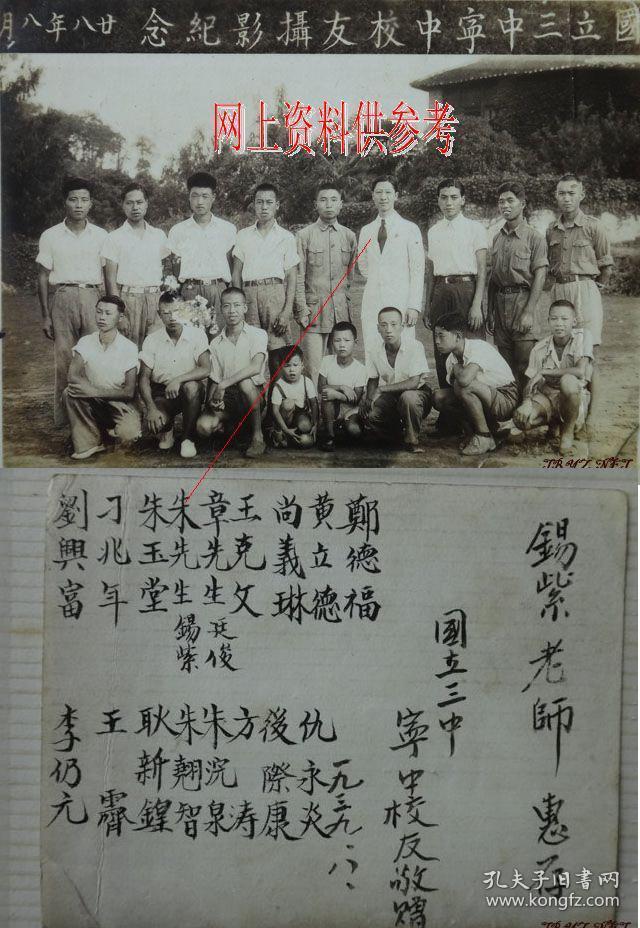 國立三中寧中校友攝影紀念 廿八年八月
网上资料供参考
錫紫老師 惠存
國立三中
寧中校友敬贈
一九三九.八.
鄭德福
黃立德
尚義琳
王克文
章先生廷俊
朱先生錫紫
朱玉堂
刁兆年
劉興富
仇永炎
後際康
方涛
朱沉泉
朱翹智
耿新鍠
王霽
李仍元
孔夫子旧书网
www.kongfz.com